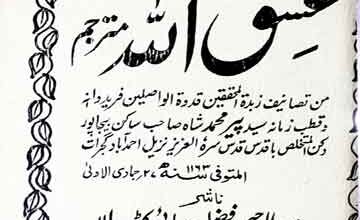 عشق اللہ مترجم
من تصانیف زبدۃ المحققین قدوۃ الواصلین فرید دانہ
وقطب زمانہ سید پیر محمد شاہ صاحب ساکن بیجاپور
دکن المتخلص باقدس قدس سرہ العزیز نزیل احمد آباد گجرات
المتوفی سنہ ۱۱۶۳ ۲۷ جمادی الاولیٰ
ناشر